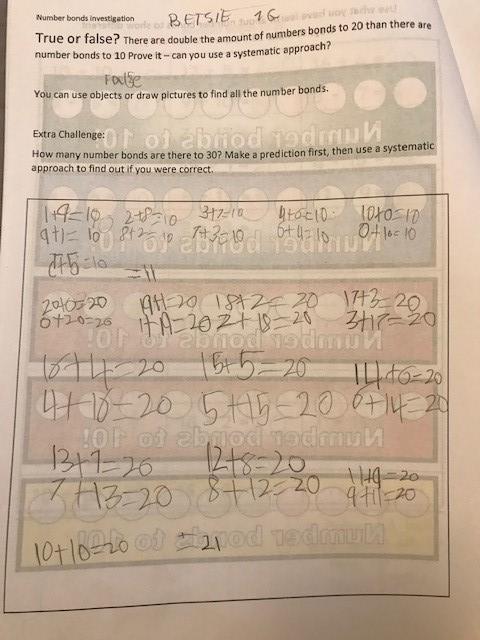 Number bonds investigation BETSIE 1G
True or false? There are double the amount of numbers bonds to 20 than there are
number bonds to 10 Prove it – can you use a systematic approach?
False
You can use objects or draw pictures to find all the number bonds.
Extra Challenge:
How many number bonds are there to 30? Make a prediction first, then use a systematic
approach to find out if you were correct.
1+9=10 2+8=10 3+7=10 4+6=10 10+0=10
9+1=10 8+2=10 7+3=10 6+4=10 0+10=10
5+5=10 =11
20+0=20 19+1=20 18+2=20 17+3=20
0+20=20 1+19=20 2+18=20 3+17=20
16+4=20 15+5=20 14+6=20
4+16=20 5+15=20 6+14=20
13+7=20 12+8=20 11+9=20
7+13=20 8+12=20 9+11=20
10+10=20 =21